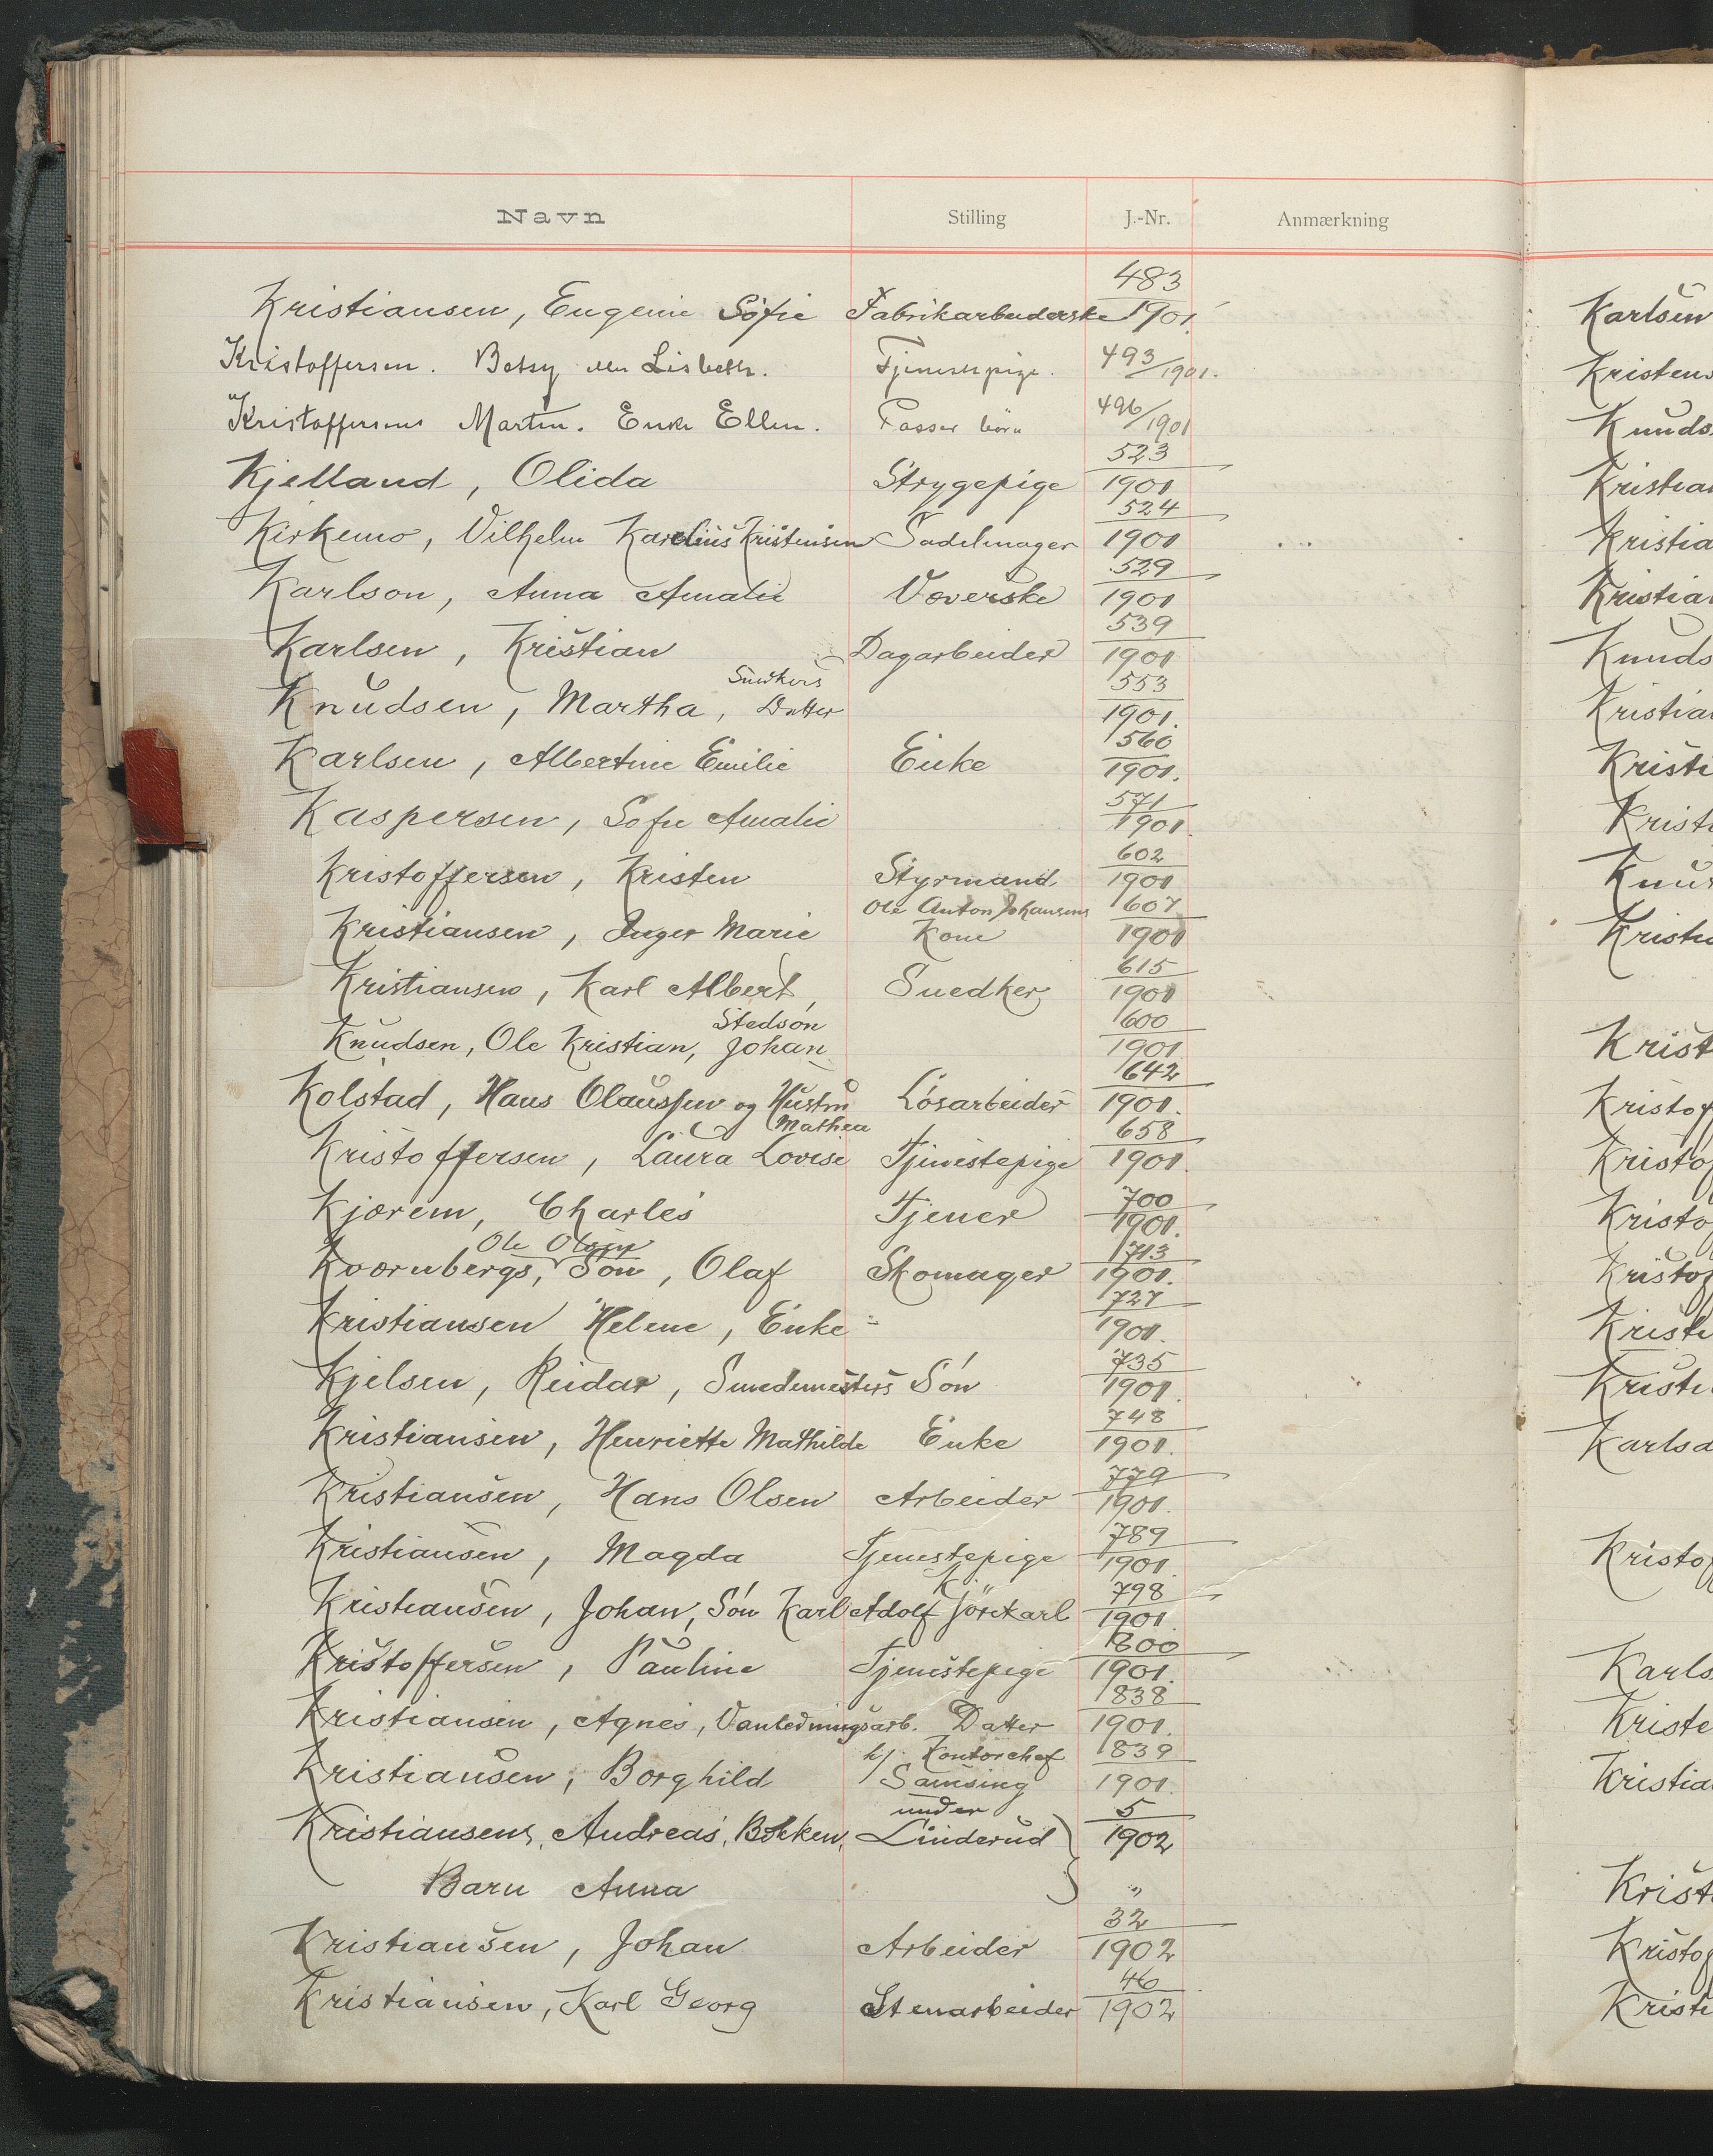 Navn Stilling J.-Nr. Anmærkning
Kristiansen, Eugenie Sofie Fabrikarbeiderske 483/1901.
Kristoffersen. Betsy eller Lisbeth. Tjenestepige. 493/1901.
Kristoffersens Martin. Enke Ellen. Passer börn 496/1901
Kjelland, Olida Strygepige 523/1901
Kirkemo, Vilhelm Karelius Kristensen Sadelmager 524/1901
Karlson, Anna Amalie Væverske 529/1901
Karlsen, Kristian Dagarbeider 539/1901
Knudsen, Martha, Snedkers Datter 553/1901.
Karlsen, Albertine Emilie Enke 560/1901.
Kaspersen, Sofie Amalie 571/1901.
Kristoffersen, Kristen Styrmand 602/1901
Kristiansen, Inger Marie Ole Anton Johansens Kone 607/1901
Kristiansen, Karl Albert, Snedker 615/1901
Knudsen, Ole Kristian, Stedsön Johan 600/1901
Kolstad, Hans Olaussen og Hustru Mathea Lösarbeider 642/1901.
Kristoffersen, Laura Lovise Tjenestepige 658/1901.
Kjærem, Charles Tjener 700/1901.
Kværnbergs, Ole Olsen Sön, Olaf Skomager 713/1901.
Kristiansen Helene, Enke 727/1901.
Kjelsen, Reidar, Smedemesters Sön 735/1901.
Kristiansen, Henriette Mathilde Enke 748/1901.
Kristiansen, Hans Olsen Arbeider 779/1901.
Kristiansen, Magda Tjenestepige 789/1901.
Kristiansen, Johan, Sön Karl Adolf Kjörekarl 798/1901.
Kristoffersen, Pauline Tjenestepige 800/1901.
Kristiansen, Agnes, Vanledningsarb. Datter 838/1901.
Kristiansen, Borghild hj. Kontorchef Samsing 839/1901.
Kristiansens, Andreas, Bakken, under Linderud 5/1902
Barn Anna "
Kristiansen, Johan Arbeider 32/1902
Kristiansen, Karl Georg Stenarbeider 46/1902
Karlsen